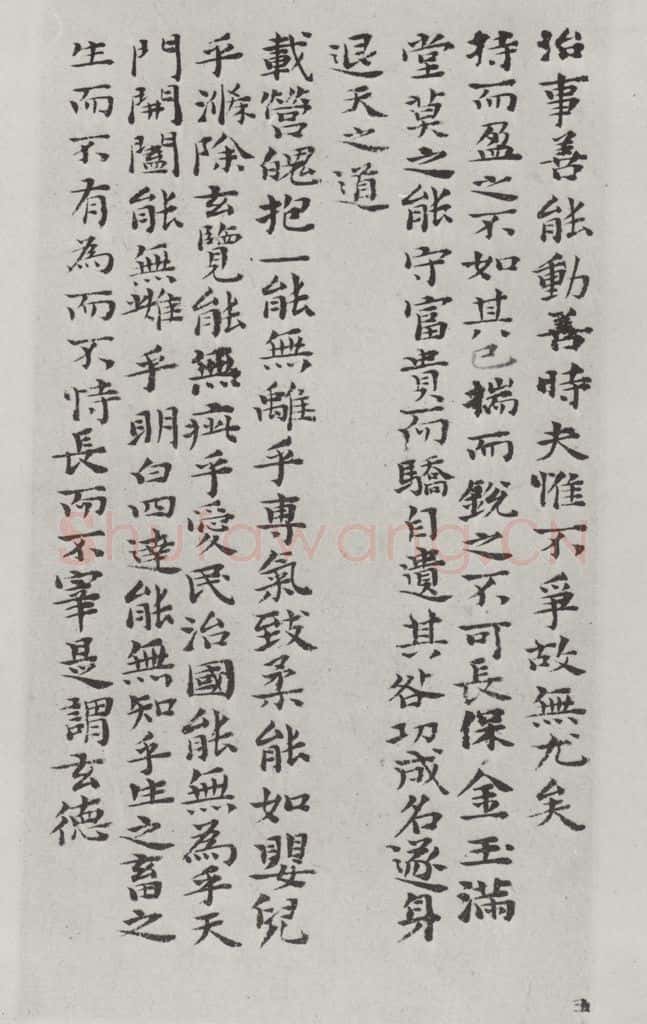 治事善能動善時夫惟不爭故無尤矣
持而盈之不如其已揣而銳之不可長保金玉滿
堂莫之能守富貴而驕自遺其咎功成名遂身
退天之道
載營魄抱一能無離乎專氣致柔能如嬰兒
乎滌除玄覽能無疵乎愛民治國能無為乎天
門開闔能無雌乎明白四達能無知乎生之畜之
生而不有為而不恃長而不宰是謂玄德
Shufawang.CN